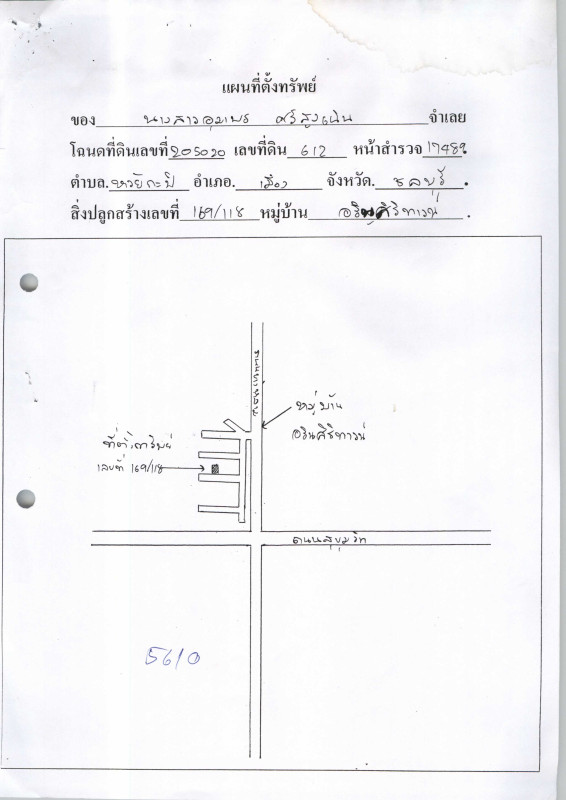 แผนที่ตั้งทรัพย์
ของ นางสาวอุมาพร ศรีสูงเนิน จำเลย
โฉนดที่ดินเลขที่ 205020 เลขที่ดิน 612 หน้าสำรวจ 17489
ตำบล. ห้วยกะปิ อำเภอ. เมือง จังหวัด. ชลบุรี
สิ่งปลูกสร้างเลขที่ 169/118 หมู่บ้าน อรินศิริทาวน์
หมู่บ้าน
อรินศิริทาวน์
ที่ตั้งทรัพย์
เลขที่ 169/118
ถนนสุขุมวิท
5610